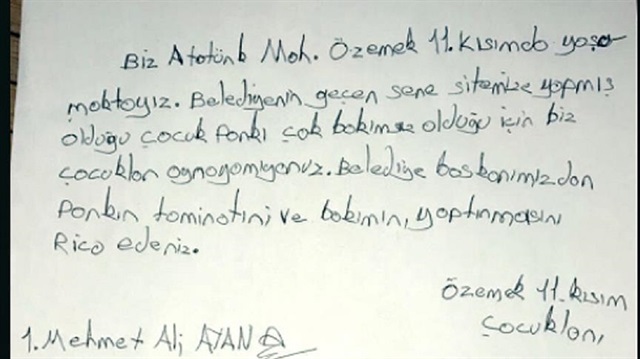 Biz Atatürk Mah. Özemek 11.Kısımda yaşa-
maktayız. Belediyenin geçen sene sitemize yapmış
olduğu çocuk Parkı çok bakımsız olduğu için biz
çocuklar oynayamıyoruz. Belediye başkanımızdan
Parkın taminatini ve bakımını, yaptırmasını
Rica ederiz.
Özemek 11.Kısım
Çocukları
1. Mehmet Ali AYAN